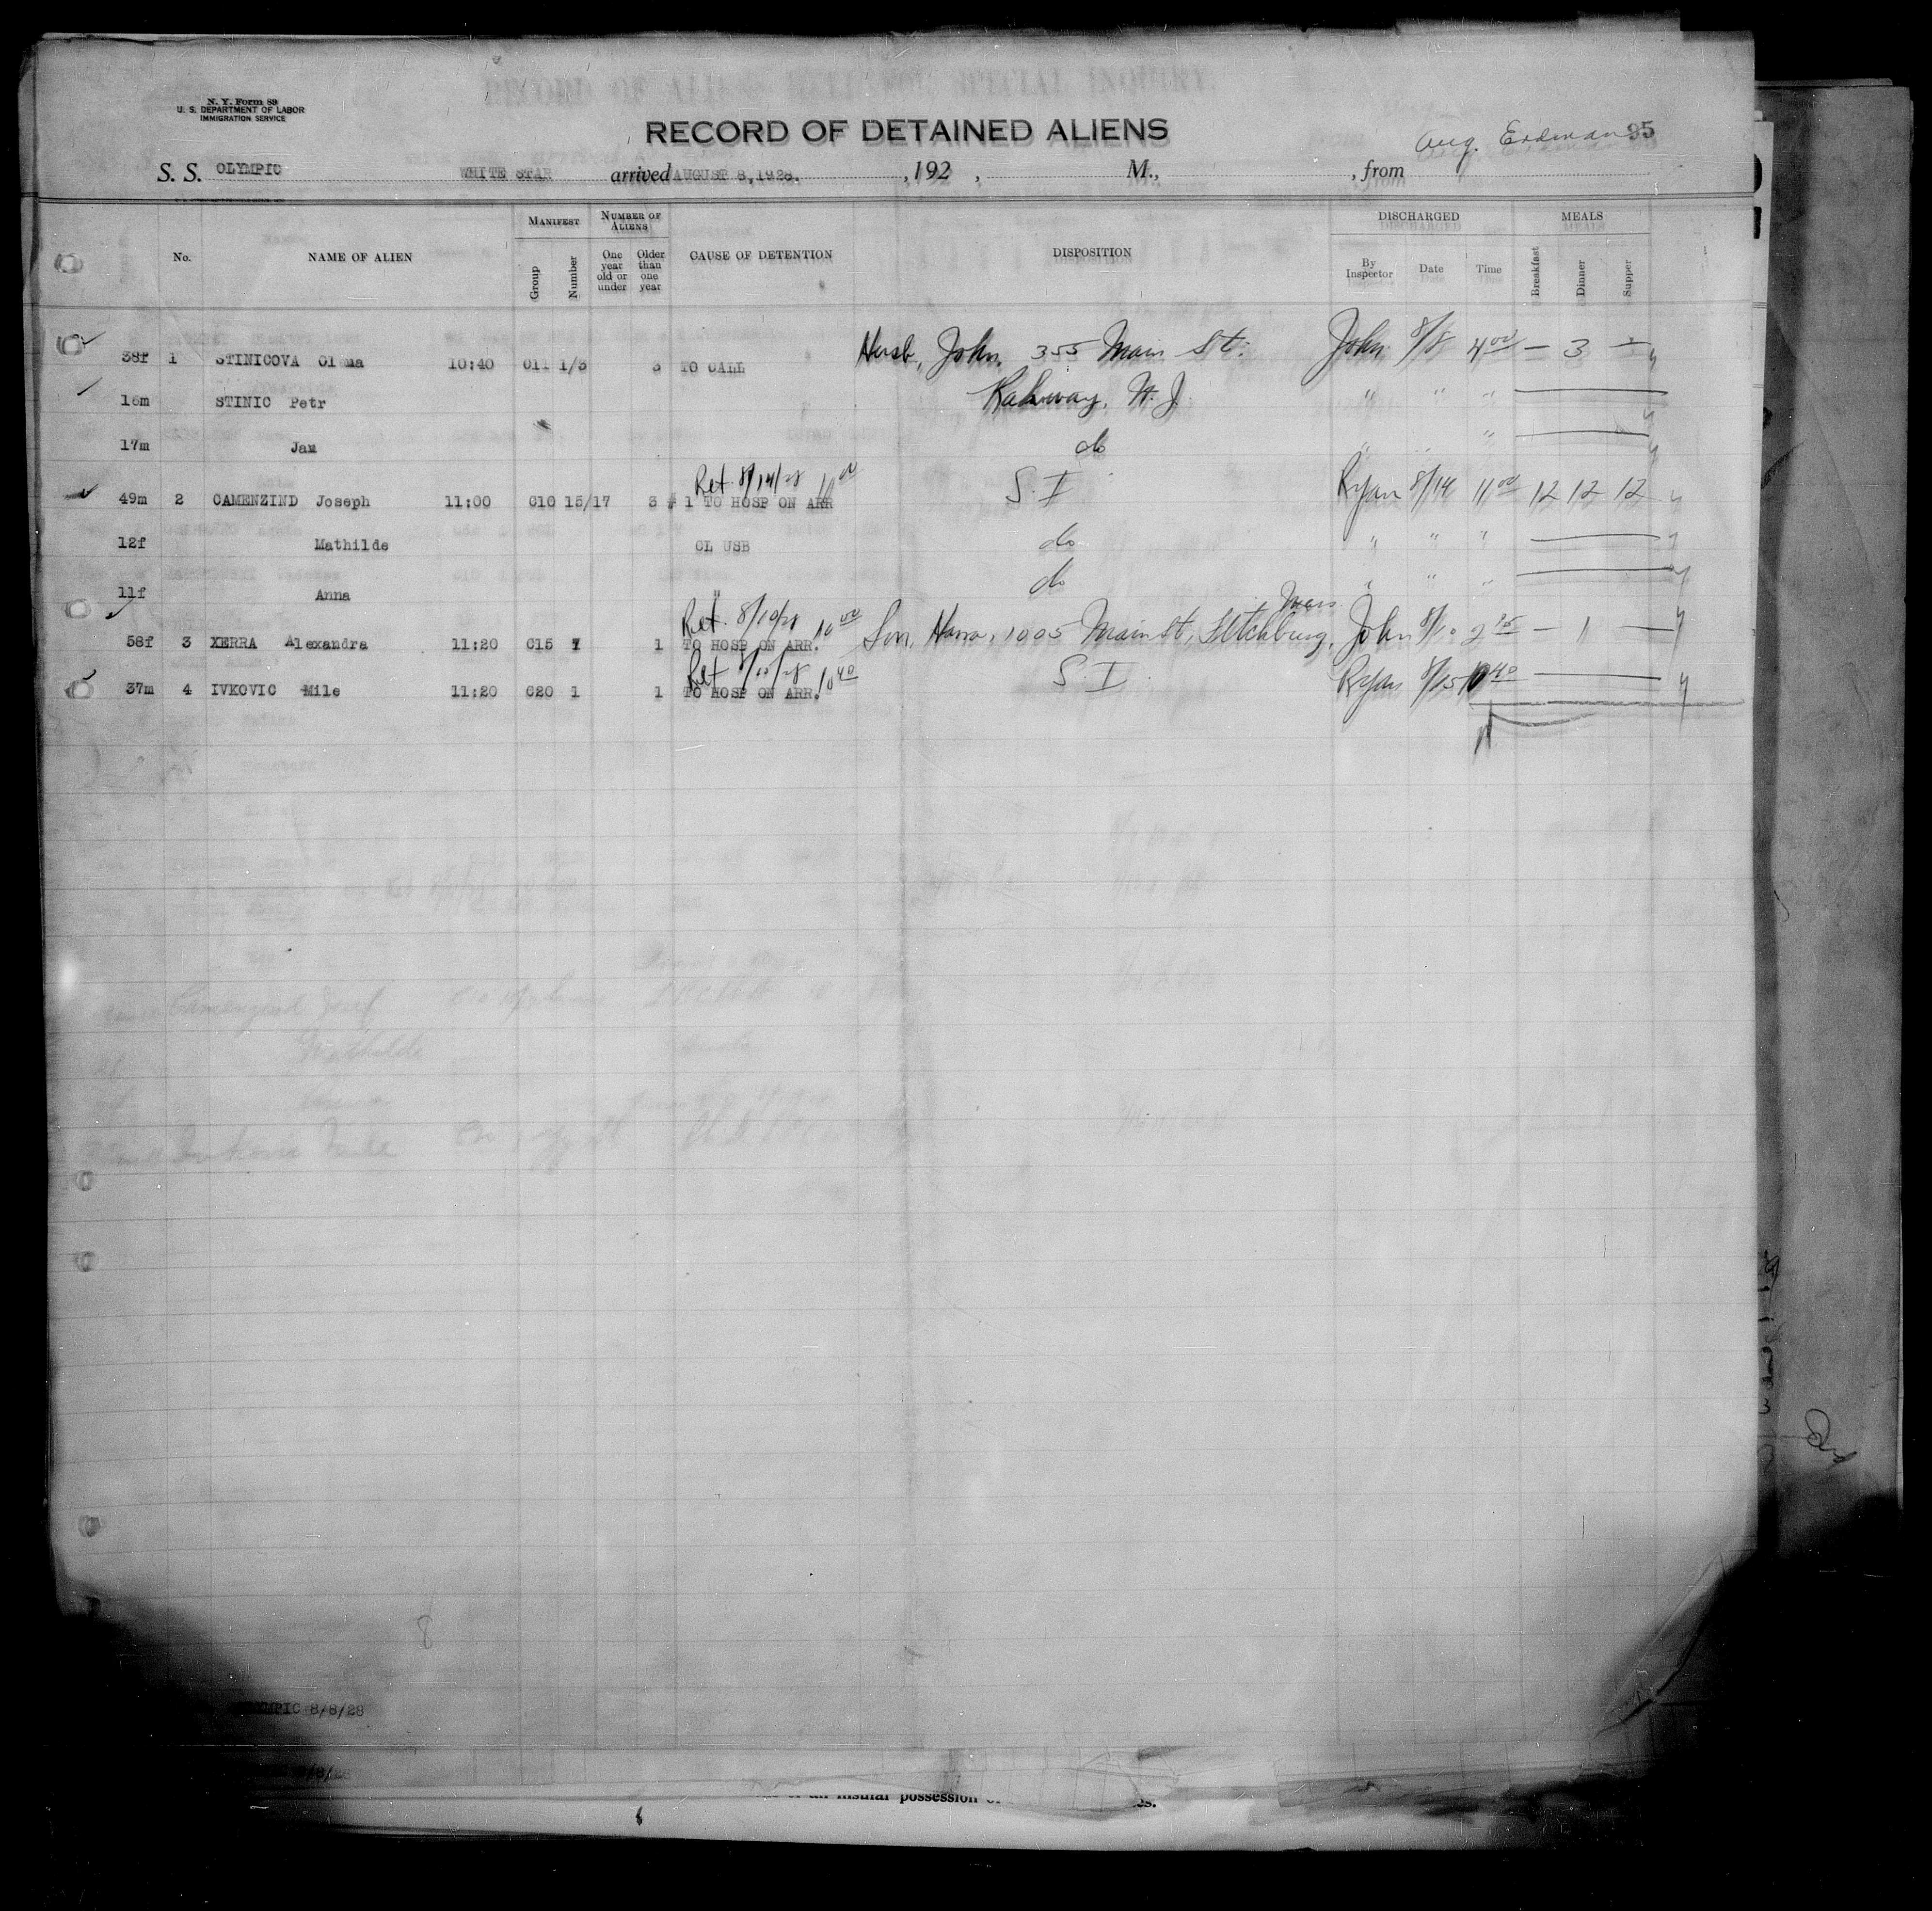 N. Y. Form 89
U. S. DEPARTMENT OF LABOR
IMMIGRATION SERVICE
RECORD OF DETAINED ALIENS
Aug. Erdman 95
S. S. OLYMPIC WHITE STAR arrived AUGUST 8, 1928. , 192 , M., , from
No. NAME OF ALIEN MANIFEST Group Number NUMBER OF ALIENS One year old or under Older than one year CAUSE OF DETENTION DISPOSITION DISCHARGED By Inspector Date Time MEALS Breakfast Dinner Supper
38f 1 STINICOVA 10:40 C11 1/3 3 TO CALL Husb, John, 355 Main St. John 8/8 4 00 — 3 —
16m STINIC Petr Rahway, N. J. " " "
17m Jan do " "
Ret 8/14/28 10 00
49m 2 CAMENZIND Joseph 11:00 C10 15/17 3 # 1 TO HOSP ON ARR S. I Ryan 8/14 11 00 12 12 12
12f Mathilde CL USB do " " "
11f Anna " do " " "
Ret 8/10/28 10 00 Mass
58f 3 XERRA Alexandra 11:20 C15 7 1 TO HOSP ON ARR. Son, 1005 Main St, Fitchburg, John 2 15 — 1 —
Ret 10 40
37m 4 IVKOVIC Mile 11:20 C20 1 1 TO HOSP ON ARR. S. I. Ryan 8/15 10 40
8
MPIC 8/8/28
possession